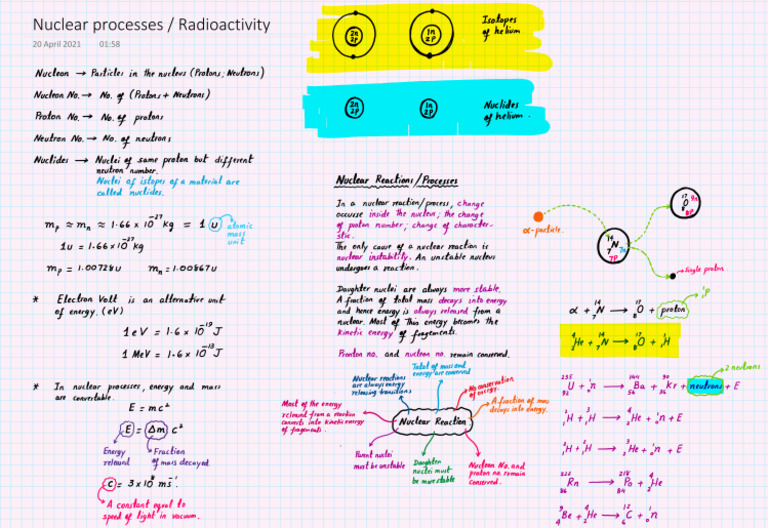 Nuclear processes / Radioactivity
20 April 2021 01:58
Nucleon → Particles in the nucleus (Protons; Neutrons)
Nucleon No. → No. of (Protons + Neutrons)
Proton No. → No. of protons
Neutron No. → No. of neutrons
Nuclides → Nuclei of same proton but different
neutron number.
Nuclei of istopes of a material are
called nuclides.
mp ≈ mn ≈ 1.66 x 10⁻²⁷ kg = 1 u
atomic
mass
unit
1u = 1.66x10⁻²⁷ kg
mp = 1.00728u mn = 1.00867u
* Electron Volt is an alternative unit
of energy. (eV)
1 eV = 1.6 x 10⁻¹⁹ J
1 MeV = 1.6 x 10⁻¹³ J
* In nuclear processes, energy and mass
are convertable.
E = mc²
E = Δm c²
Energy
released
Fraction
of mass decayed.
c = 3x10⁸ ms⁻¹.
A constant equal to
speed of light in vacuum.
2n
2p
1n
2p
Isotopes
of helium
2n
2p
1n
2p
Nuclides
of helium.
Nuclear Reactions/Processes
In a nuclear reaction/process, change
occurse inside the nucleus; the change
of proton number; change of character-
stic.
The only cause of a nuclear reaction is
nuclear instability. An unstable nucleus
undergoes a reaction.
Daughter nuclei are always more stable.
A fraction of total mass decays into energy
and hence energy is always released from a
nuclear. Most of this energy becomes the
kinetic energy of fragements.
Pronton no. and nucleon no. remain conserved.
Nuclear reactions
are always energy
releasing transitions
Total of mass and
energy are conserved
No conservation
of energy.
A fraction of mass
decays into energy.
Most of the energy
released from a reaction
converts into kinetic energy
of fragements
Nuclear Reaction
Parent nuclei
must be unstable
Daughter
nuclei must
be more stable
Nucleon No. and
proton no. remain
conserved.
α-particle.
¹⁴₇N
7n
7p
¹⁷₈O
9n
8p
Single proton
α + ¹⁴₇N → ¹⁷₈O + proton
¹₁p
⁴₂He + ¹⁴₇N → ¹⁷₈O + ¹₁H
2 neutrons
²³⁵₉₂U + ¹₀n → ¹⁴⁴₅₆Ba + ⁹⁰₃₆Kr + neutrons + E
²₁H + ³₁H → ⁴₂He + ¹₀n + E
²₁H + ²₁H → ³₂He + ¹₀n + E
²²²₈₆Rn → ²¹⁸₈₄Po + ⁴₂He
⁹₄Be + ⁴₂He → ¹²₆C + ¹₀n